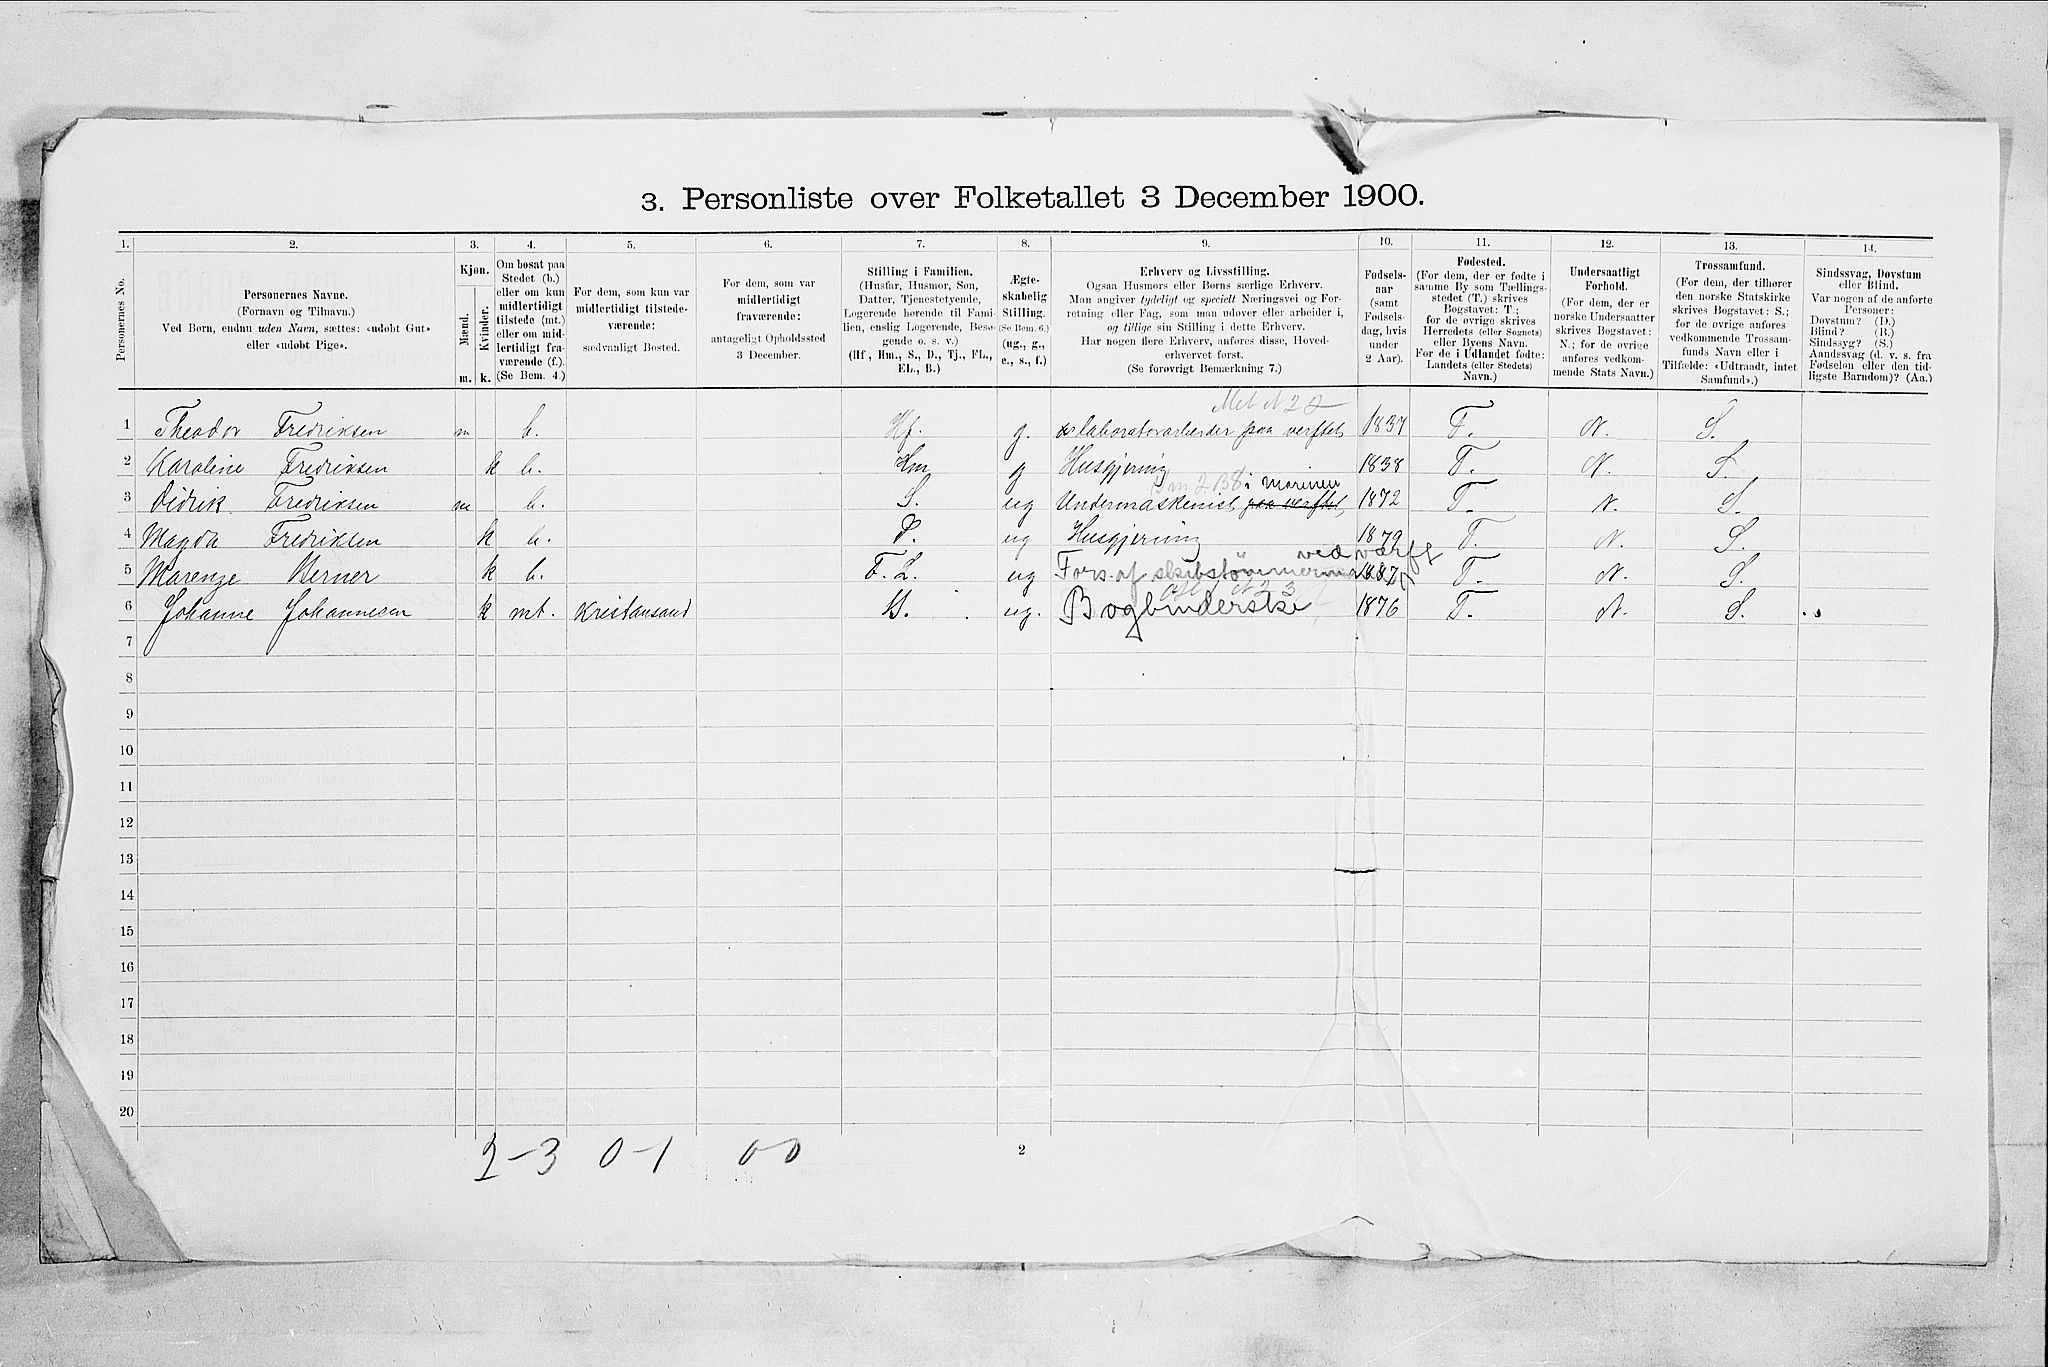 3. Personliste over Folketallet 3 December 1900.
1. 2. 3. 4. 5. 6. 7. 8. 9. 10. 11. 12. 13. 14.
Personernes No.
Personernes Navne.
(Fornavn og Tilnavn.)
Ved Børn, endnu uden Navn, sættes: «udøbt Gut»
eller «udøbt Pige».
Kjøn.
Mænd.
Kvinder.
m. k.
Om bosat paa
Stedet (b.)
eller om kun
midlertidigt
tilstede (mt.)
eller om mid-
lertidigt fra-
værende (f.).
(Se Bem. 4.)
For dem, som kun var
midlertidigt tilstede-
værende:
sædvanligt Bosted.
For dem, som var
midlertidigt
fraværende:
antageligt Opholdssted
3 December.
Stilling i Familien.
(Husfar, Husmor, Søn,
Datter, Tjenestetyende,
Logerende hørende til Fami-
lien, enslig Logerende, Besø-
gende o. s. v.)
(Hf, Hm., S., D., Tj., FL.,
EL., B.)
Ægte-
skabelig
Stilling.
(Se Bem. 6.)
(ug., g.,
e., s., f.)
Erhverv og Livsstilling.
Ogsaa Husmors eller Børns særlige Erhverv.
Man angiver tydeligt og specielt Næringsvei og For-
retning eller Fag, som man udover eller arbeider i,
og tillige sin Stilling i dette Erhverv.
Har nogen flere Erhverv, anføres disse, Hoved-
erhvervet først.
(Se forøvrigt Bemærkning 7.)
Fødsels-
aar
(samt
Fødsels-
dag, hvis
under
2 Aar).
Fødested.
(For dem, der er fødte i
samme By som Tællings-
stedet (T.) skrives
Bogstavet: T.;
for de øvrige skrives
Herredets (eller Sognets)
eller Byens Navn.
For de i Udlandet fødte:
Landets (eller Stedets)
Navn.)
Undersaatligt
Forhold.
(For dem, der er
norske Undersaatter
skrives Bogstavet:
N.; for de øvrige
anføres vedkom-
mende Stats Navn.)
Trossamfund.
(For dem, der tilhører
den norske Statskirke
skrives Bogstavet: S.;
for de øvrige anføres
vedkommende Trossam-
funds Navn eller i
Tilfælde: «Udtraadt, intet
Samfund».)
Sindssvag, Døvstum
eller Blind.
Var nogen af de anførte
Personer:
Døvstum? (D.)
Blind? (B.)
Sindssyg? (S.)
Aandssvag (d. v. s. fra
Fødselen eller den tid-
ligste Barndom)? (Aa.)
1 Theodor Fredriksen m b. Hf. g. laboratorarbeider paa verftet 1837 T. N. S.
2 Karoline Fredriksen k b. Hm g Husgjerning 1838 T. N. S.
i Marinen
3 Didrik Fredriksen m b. S. ug Undermaskenist paa verftet, 1872 T. N. S.
4 Magda Fredriksen k b. D. ug Husgjerning 1879 T. N. S.
ved værft
5 Marenze Berner k b. F. L. ug Fors. af skibstømmermand T. N. S.
6 Johanne Johannesen k mt. Kristansand B. ug. Bogbinderske 1876 T. N. S.
7
8
9
10
11
12
13
14
15
16
17
18
19
20
2-3 0-1 0-0
2